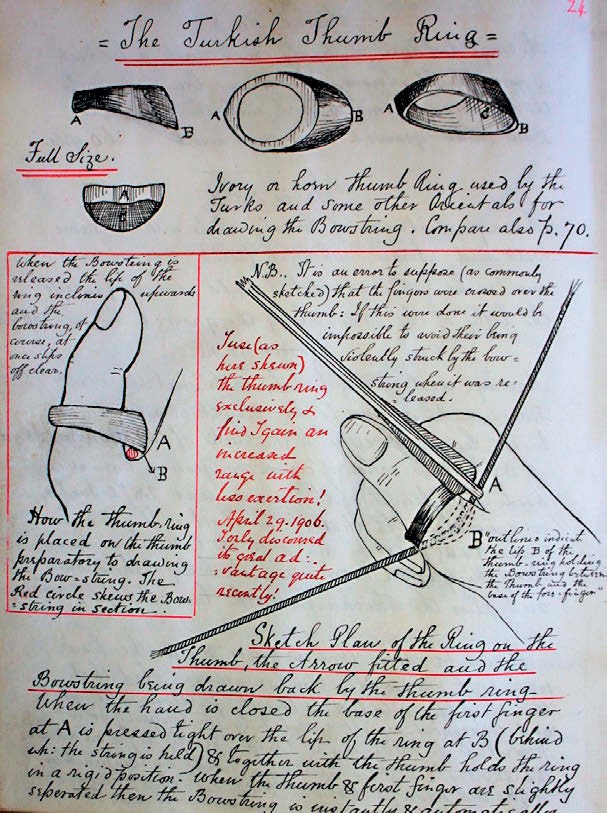 24
= The Turkish Thumb Ring =
A
B
A
B
A
C
B
Full Size.
A
C
Ivory or horn Thumb Ring used by the
Turks and some other Orientals for
drawing the Bowstring. Compare also p. 70.
When the Bowstring is
released the lip of the
ring inclines upwards
and the
bowstring, of
course, at
once slips
off clear.
A
B
How the thumb-ring
is placed on the thumb
preparatory to drawing
the Bow-string. The
Red circle shews the Bow-
-string in section.
N.B.. It is an error to suppose (as commonly
sketched) that the fingers were crossed over the
thumb: If this were done it would be
impossible to avoid their being
violently struck by the bow=
string when it was re-
-leased.
I use (as
here shewn)
the thumb ring
exclusively &
find I gain an
increased
range with
less exertion!
April 29. 1906.
I only discovered
its great ad:-
-vantage quite
recently!
A
B
"outlines indicate
the lip B of the
thumb-ring holding
the Bowstring between
the Thumb and the
base of the fore-finger"
Sketch Plan of the Ring on the
Thumb, the Arrow fitted and the
Bowstring being drawn back by the thumb ring
When the hand is closed the base of the first finger
at A is pressed tight over the lip of the ring at B (behind
wh: the string is held) & together with the thumb holds the ring
in a rigid position. When the thumb & first finger are slightly
seperated then the Bowstring is instantly & automatically